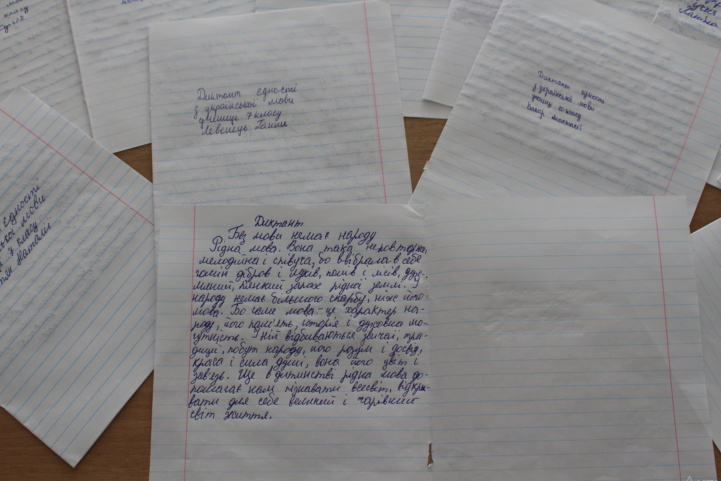 Диктант єдності
з української мови
учениці 7 класу
Левенець Ганни
Диктант єдності
з української мови
учениці 10 класу
єдності
мови
7 класу
Диктант
Без мови немає народу
Рідна мова. Вона така неповторна,
мелодійна і співуча, бо ввібрала в себе
гомін дібров і лісів, полів і морів, духм-
яний, п'янкий запах рідної землі. У
народу немає більшого скарбу, ніж його
мова. Бо саме мова - це характер на-
роду, його пам'ять, історія і духовна мо-
гутність. У ній відбиваються звичаї, тра-
диції, побут народу, його розум і досвід,
краса і сила душі, вона його цвіт і
зав'язь. Ще в дитинстві рідна мова до-
помагає нам пізнавати всесвіт, відкри-
вати для себе великий і чарівний
світ життя.